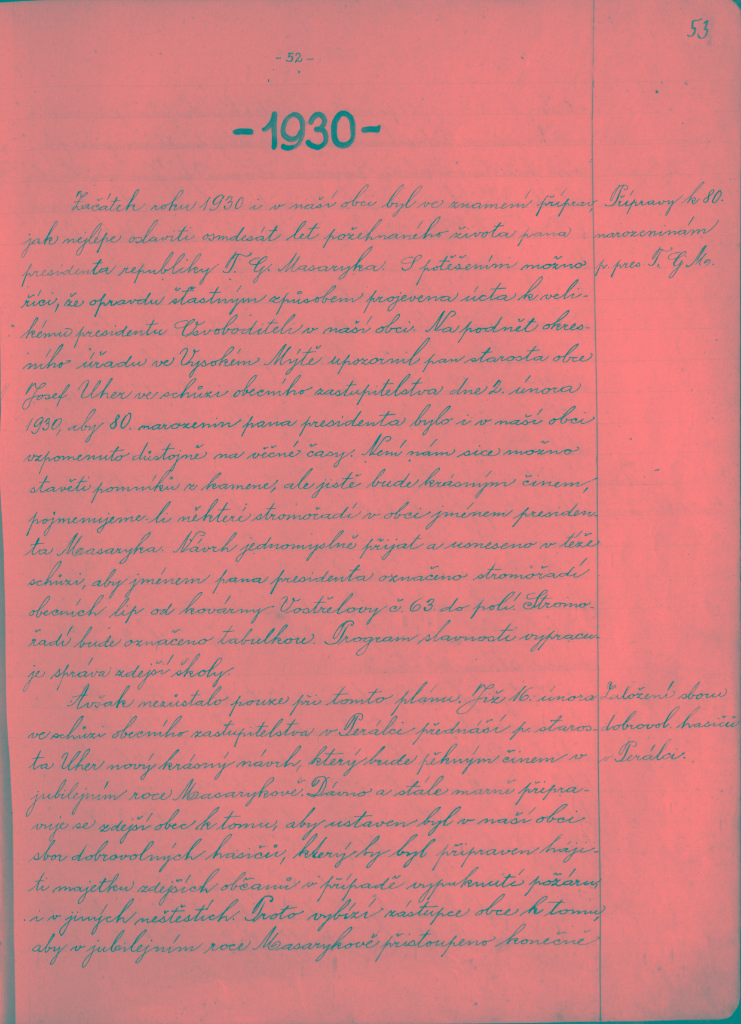 53
- 52 -
- 1930 -
Začátek roku 1930 i v naší obci byl ve znamení příprav,
Přípravy k 80.
jak nejlépe oslaviti osmdesát let požehnaného života pana
narozeninám
presidenta republiky T. G. Masaryka. S potěšením možno
p. pres. T. G. Ma.
říci, že opravdu šťastným způsobem projevena úcta k veli-
kému presidentu Osvoboditeli v naší obci. Na podnět okres-
ního úřadu ve Vysokém Mýtě upozornil pan starosta obce
Josef Uher ve schůzi obecního zastupitelstva dne 2. února
1930, aby 80. narozenin pana presidenta bylo i v naší obci
vzpomenuto důstojně na věčné časy. Není nám sice možno
stavěti pomníků z kamene, ale jistě bude krásným činem,
pojmenujeme-li některé stromořadí v obci jménem presiden-
ta Masaryka. Návrh jednomyslně přijat a usneseno v téže
schůzi, aby jménem pana presidenta označeno stromořadí
obecních lip od kovárny Vostřelovy č. 63 do polí. Stromo-
řadí bude označeno tabulkou. Program slavnosti vypracu-
je správa zdejší školy.
Avšak nezůstalo pouze při tomto plánu. Již 16. února
Založení sboru
ve schůzi obecního zastupitelstva v Perálci přednáší p. staros-
dobrovol. hasičů
ta Uher nový krásný návrh, který bude pěkným činem v
v Perálci.
jubilejním roce Masarykově. Dávno a stále marně připra-
vuje se zdejší obec k tomu, aby ustaven byl v naší obci
sbor dobrovolných hasičů, který by byl připraven háji-
ti majetku zdejších občanů v případě vypuknutí požáru,
i v jiných neštěstích. Proto vybízí zástupce obce k tomu,
aby v jubilejním roce Masarykově přistoupeno konečně